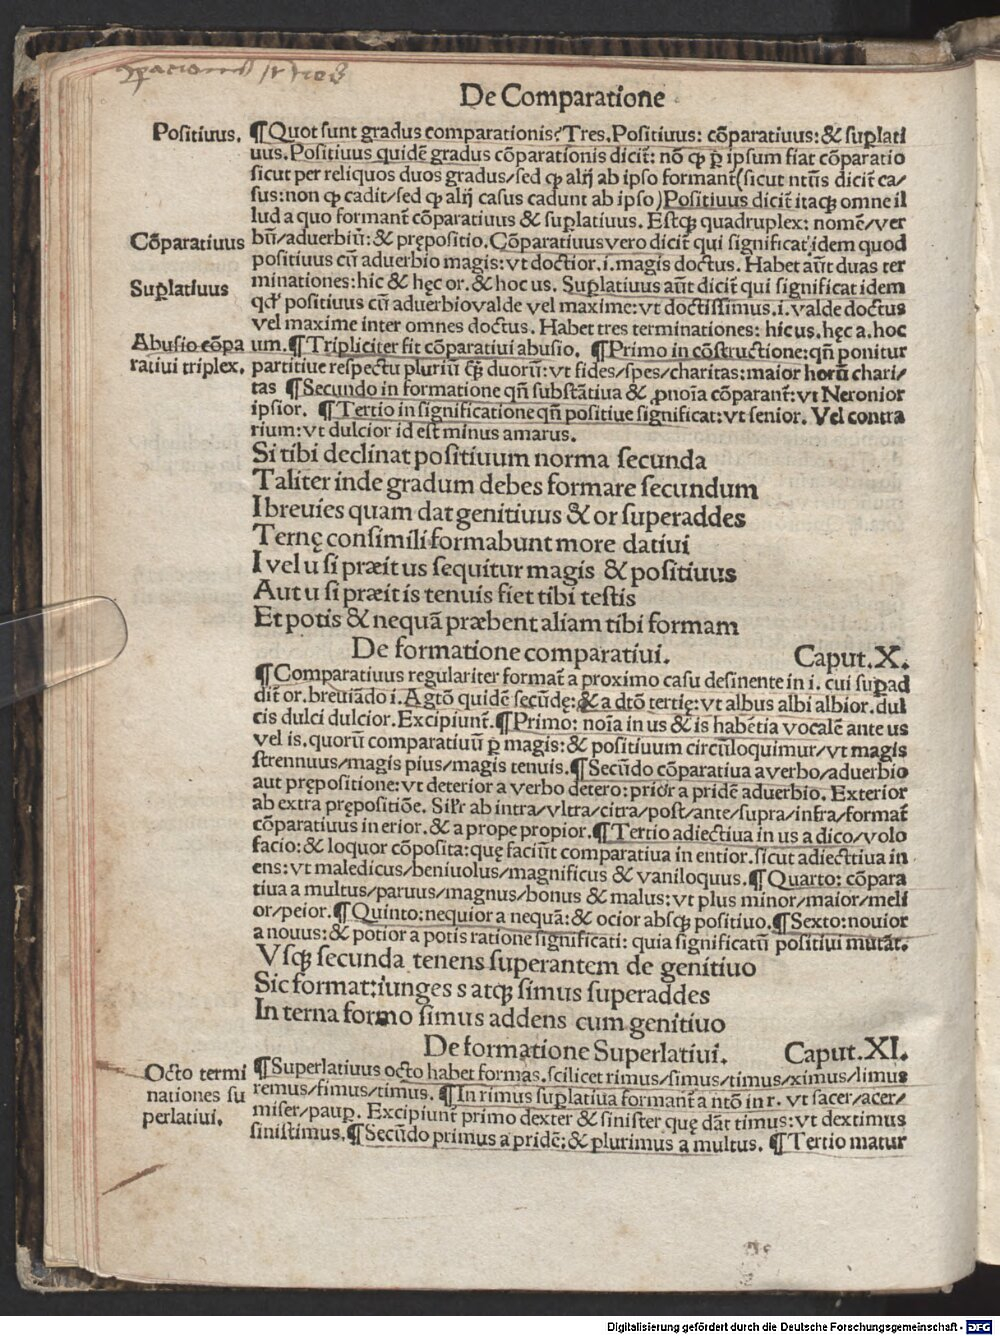 De Comparatione
Positiuus. ¶Quot sunt gradus comparationis? Tres. Positiuus: cōparatiuus: & sup̱lati
uus. Positiuus quidē gradus cōparationis dicit᷑: nō ꝙ p̱ ipsum fiat cōparatio
sicut per reliquos duos gradus/sed ꝙ alij ab ipso formant᷑(sicut ntūs dicit᷑ ca/
sus:non ꝙ cadit/sed ꝙ alij casus cadunt ab ipso)Positiuus dicit᷑ itaqꝫ omne il
lud a quo formant᷑ cōparatiuus & sup̱latiuus. Estqꝫ quadruplex: nomē/ver
Cōparatiuus bū/aduerbiū: & prępositio. Cōparatiuus vero dicit᷑ qui significat idem quod
positiuus cū aduerbio magis: vt doctior .i. magis doctus. Habet aūt duas ter
Sup̱latiuus minationes: hic & hęc or. & hoc us. Sup̱latiuus aūt dicit᷑ qui significat idem
qd' positiuus cū aduerbio valde vel maxime: vt doctissimus .i. valde doctus
vel maxime inter omnes doctus. Habet tres terminationes: hic us. hęc a. hoc
Abusio cōpa um. ¶Tripliciter fit cōparatiui abusio. ¶Primo in cōstructione: qn̄ ponitur
ratiui triplex. partitiue respectu pluriū qꝫ̄ duorū: vt fides/spes/charitas: maior horū chari/
tas ¶Secundo in formatione qn̄ substātiua & ꝓnoīa cōparant᷑: vt Neronior
ipsior. ¶Tertio in significatione qn̄ positiue significat: vt senior. Vel contra
rium: vt dulcior id est minus amarus.
Si tibi declinat positiuum norma secunda
Taliter inde gradum debes formare secundum
I breuies quam dat genitiuus & or superaddes
Ternę consimili formabunt more datiui
I vel u si præit us sequitur magis & positiuus
Aut u si præit is tenuis fiet tibi testis
Et potis & nequā præbent aliam tibi formam
De formatione comparatiui. Caput.X.
¶Comparatiuus regulariter format᷑ a proximo casu desinente in i. cui sup̱ad
dit᷑ or. breuiādo i. A gtō quidē secūdę: & a dtō tertię: vt albus albi albior. dul
cis dulci dulcior. Excipiunt᷑. ¶Primo: noīa in us & is habētia vocalē ante us
vel is. quorū comparatiuū p̱ magis: & positiuum circūloquimur/vt magis
strennuus/magis pius/magis tenuis. ¶Secūdo cōparatiua a verbo/aduerbio
aut prępositione: vt deterior a verbo detero: prior a pridē aduerbio. Exterior
ab extra prępositiōe. Silr̄ ab intra/vltra/citra/post/ante/supra/infra/format᷑
cōparatiuus in erior. & a prope propior. ¶Tertio adiectiua in us a dico/volo
facio: & loquor cōposita: quę faciūt comparatiua in entior. sicut adiecttiua in
ens: vt maledicus/beniuolus/magnificus & vaniloquus. ¶Quarto: cōpara
tiua a multus/paruus/magnus/bonus & malus: vt plus minor/maior/meli
or/peior. ¶Quinto: nequior a nequā: & ocior absqꝫ positiuo. ¶Sexto: nouior
a nouus: & potior a potis ratione significati: quia significatū positiui mutāt.
Vsqꝫ secunda tenens superantem de genitiuo
Sic format: iunges s atqꝫ simus superaddes
In terna formo simus addens cum genitiuo
De formatione Superlatiui. Caput.XI.
Octo termi ¶Superlatiuus octo habet formas. scilicet rimus/simus/timus/ximus/limus
nationes su remus/fimus/timus. ¶In rimus sup̱latiua formant᷑ a ntō in r. vt sacer/acer/
perlatiui. miser/paup̱. Excipiunt᷑ primo dexter & sinister quę dāt timus: vt dextimus
sinistimus. ¶Secūdo primus a pridē: & plurimus a multus. ¶Tertio matur
Digitalisierung gefördert durch die Deutsche Forschungsgemeinschaft - DFG